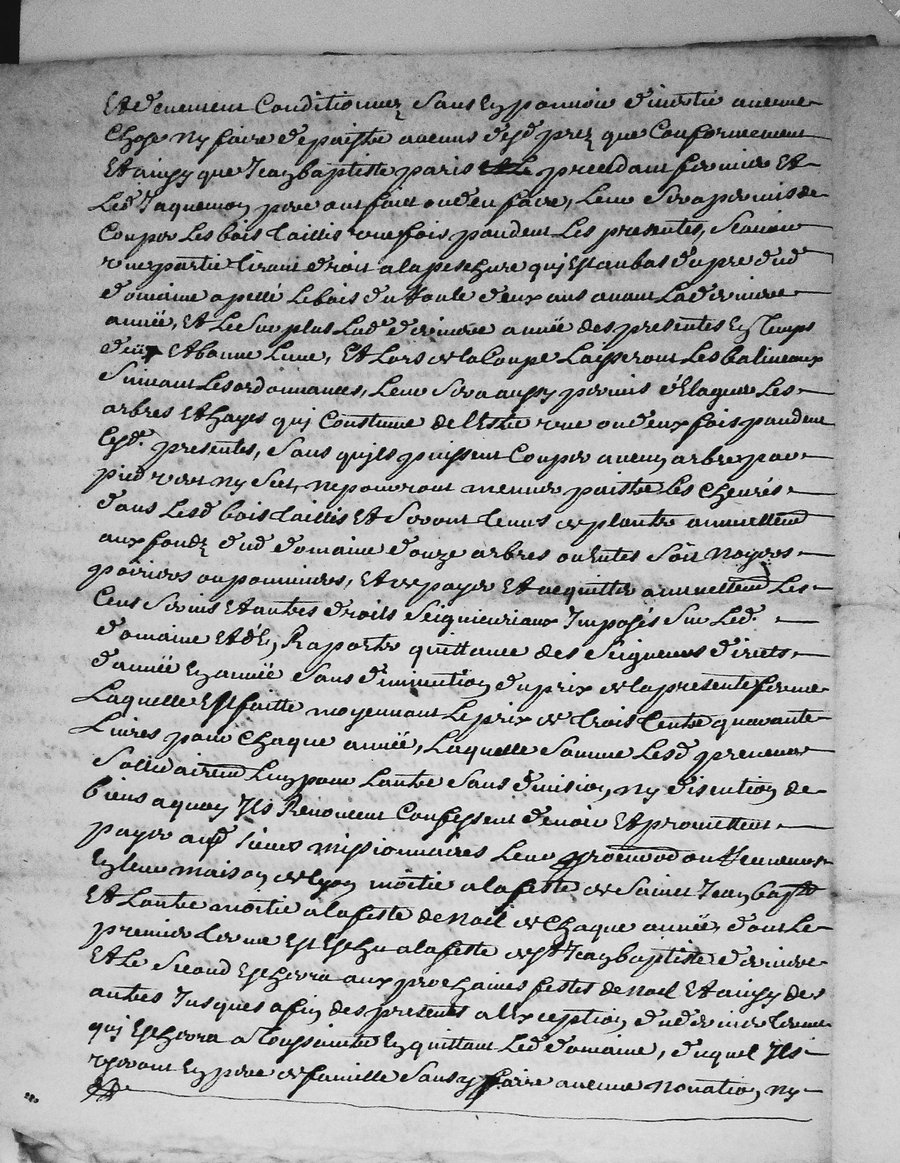 Et deuement Conditionnez sans En pouvoir divertir aucune
Chose ny faire depaistre aucuns desd prez que Conformement
Et ainsy que Jean baptiste paris precedant fermier Et
Led Jaquemon pere ont fait ou deu faire, Leur sera permis de
Couper Les bois taillis une fois pandent Les presentes, scavoir
une partie tirant droit a la peschere qui Est au bas du pre dud
domaine apellé Le bois du deux ans avant Lad derniere
année, Et Le surplus Lade derniere année des presentes En temps
deu Et bonne Lune, Et Lors de la Coupe Laisseront Les balineaux
suivant Les ordonnances, Leur sera aussy permis d'Elaguer Les
arbres Et hayes qui Coustume de l'Estre une ou deux fois pandent
Lesd. presentes, sans quils puissent Couper aucun arbre par
pied vert ny sec, ne pouront menner paistre Les Chevres
dans Lesd bois taillis Et seront tenus de planter annuellemt
aux fondz dud domaine douze arbres ou Entes soit Noyers
poiriers ou pommiers, Et de payer Et acquitter annuellemt Les
Cens servis Et autres droits seigneuriaux Imposés sur Led.
domaine Et d'En Raporter quittance des seigneurs directs
d'année En année sans diminution du prix de la presente ferme
Laquelle Est faitte moyennant Le prix de trois Cents quarante
Livres pour Chaque année, Laquelle somme Lesd preneurs
sollidairemt L'un pour L'autre sans division ny discution de
biens a quoy Ils Renoncent Confessent devoir Et promettent
payer ausd sieurs missionnaires Leur ou
En Leur maison de Lyon moitié a la feste de saint Jean bapte
Et L'autre moitié a la feste de Noel de Chaque année, dont Le
premier terme Est Escheu a la feste de st Jean baptiste derniere
Et Le second Eschera aux prochaines festes de Noel Et ainsy des
autres Jusques a fin des presentes a l'Exception dud dernier terme
qui Eschera a toussaints En quittant Led domaine, duquel Ils
Jouiront En pere de famille sans y faire aucune Novation ny